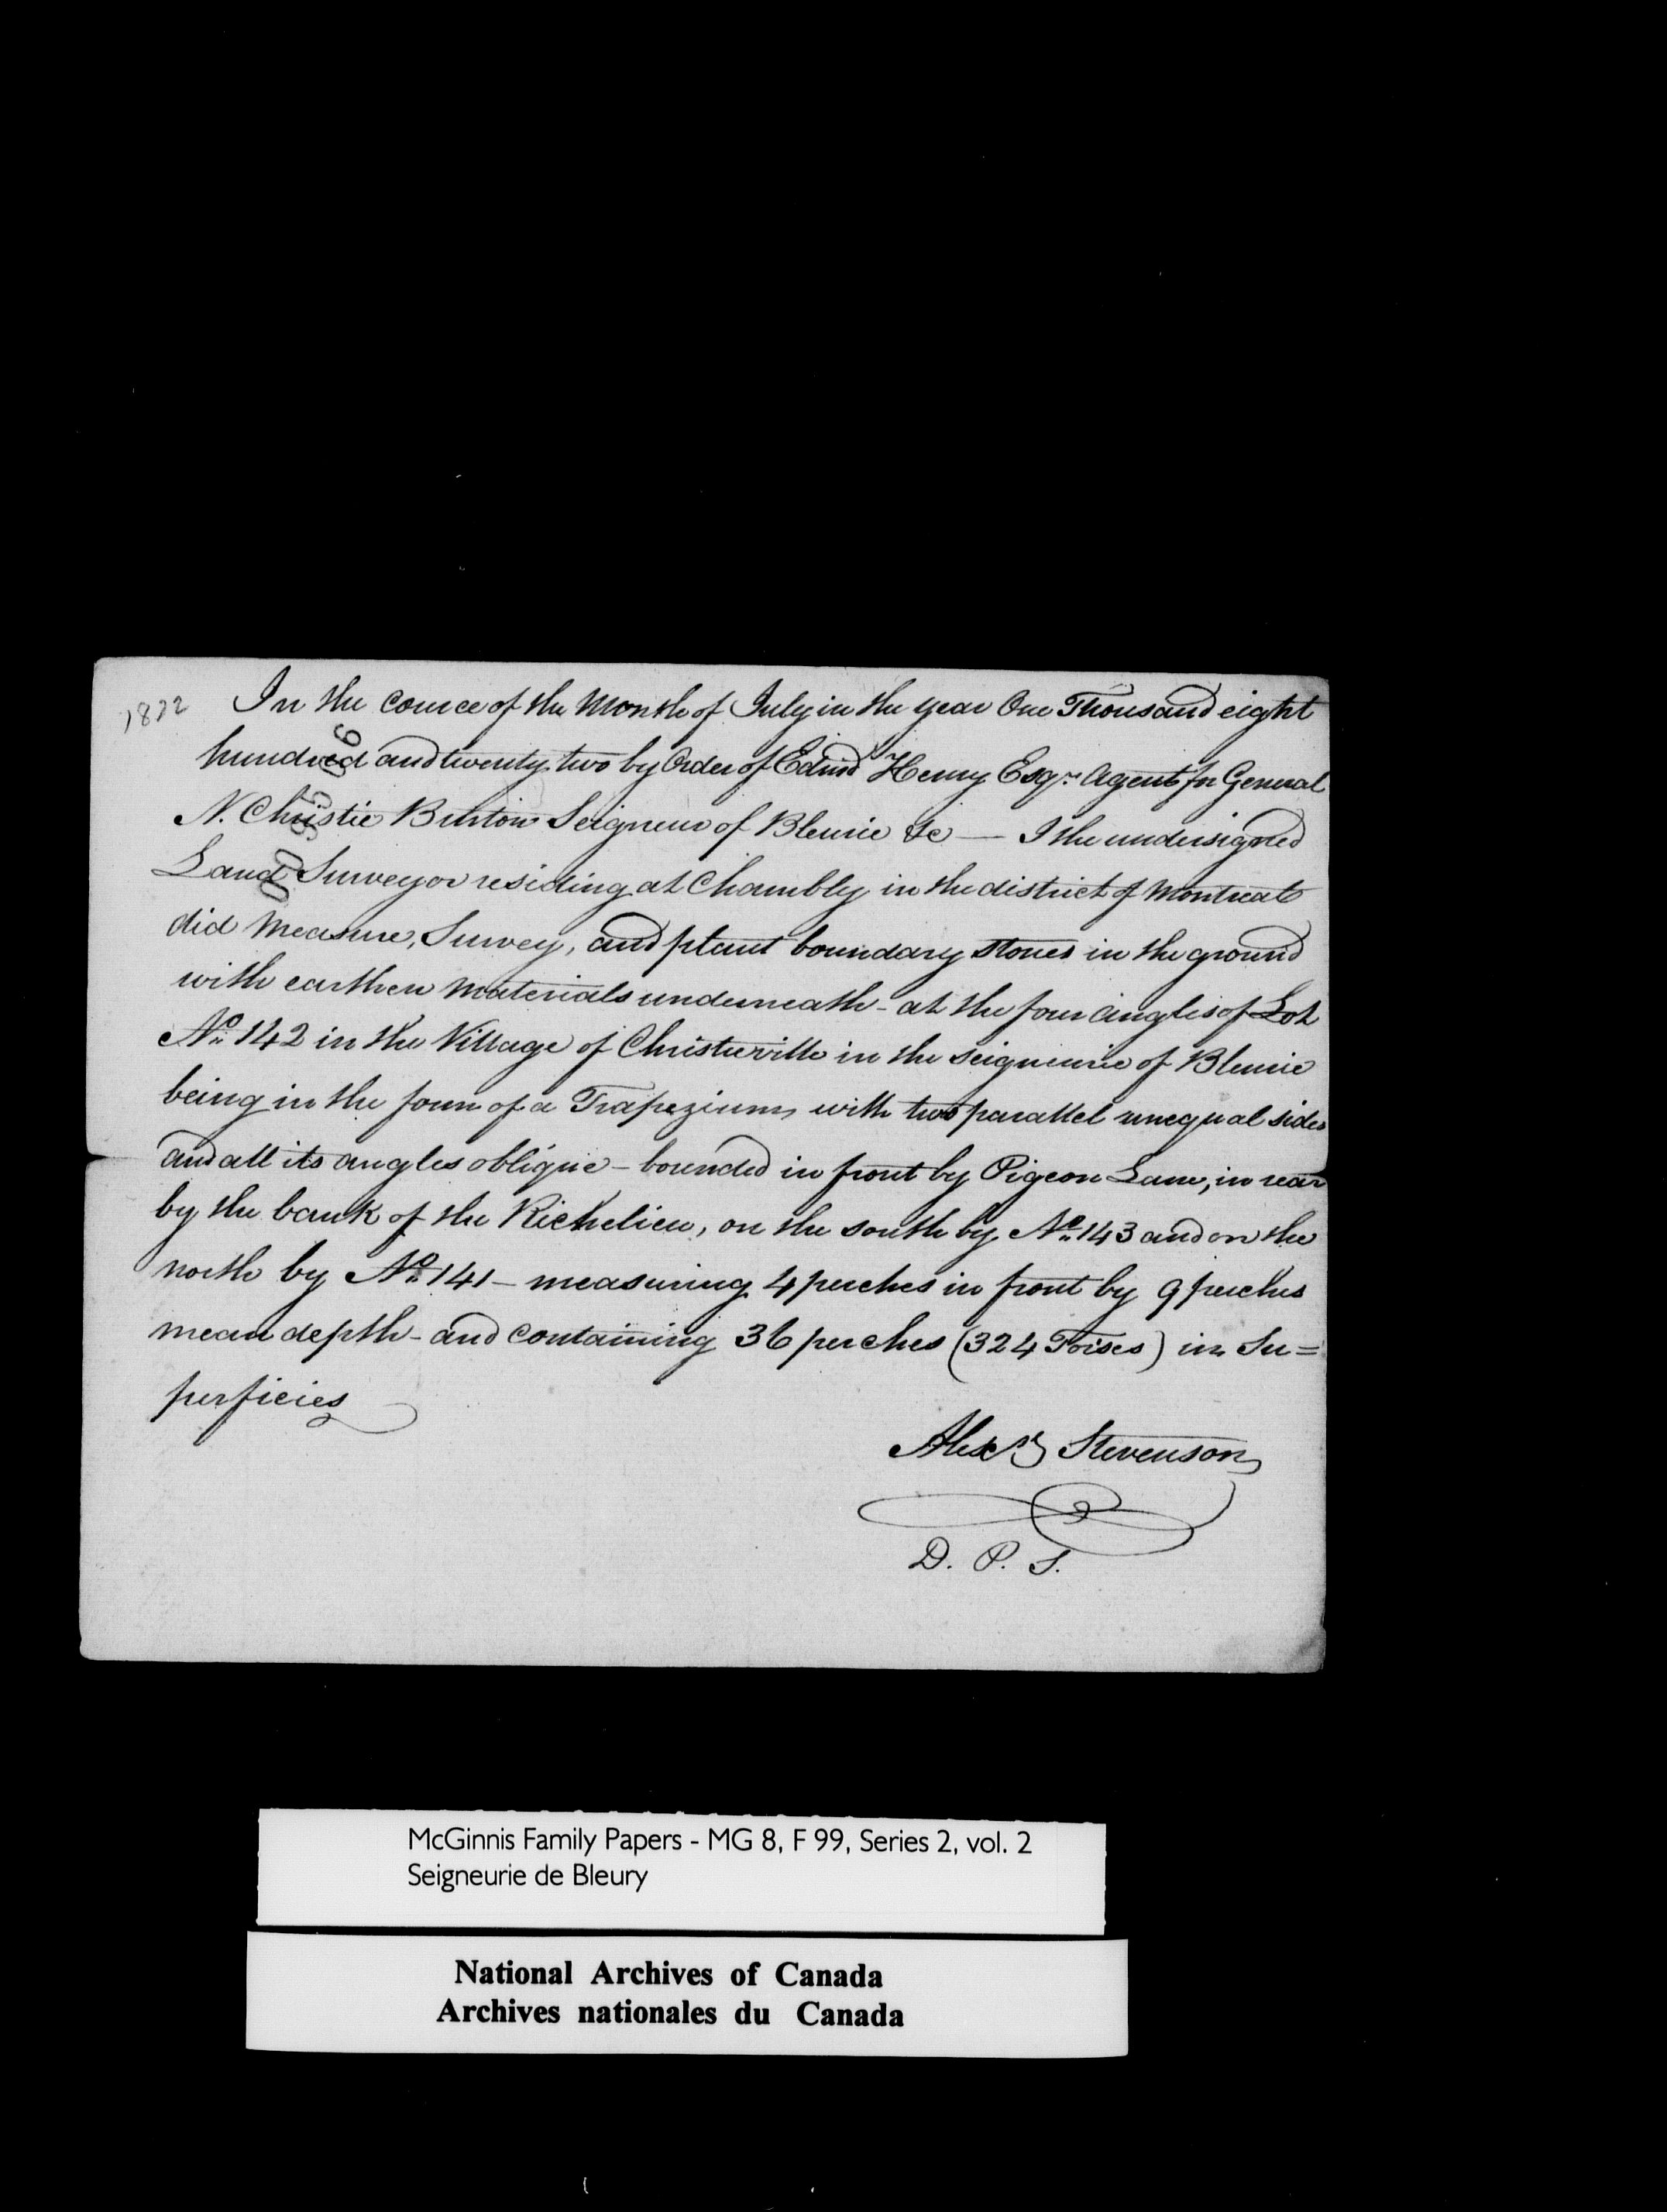 1822
In the cource of the Month of July in the year One Thousand eight
hundred and twenty two by Order of Edmd Henry Esqr. Agent for General
N. Christie Burton Seigneur of Bleurie &c — I the undersigned
Land Surveyor residing at Chambly in the district of Montreal
did Measure, Survey, and plant boundary stones in the ground
with earthen Materials underneath - at the four angles of Lot
No. 142 in the Village of Christieville in the seigneurie of Bleurie
being in the form of a Trapezium with two parallel unequal sides
and all its angles oblique - bounded in front by Pigeon Lane, in rear
by the bank of the Richelieu, on the south by No. 143 and on the
north by No. 141 - measuring 4 perches in front by 9 perches
mean depth - and containing 36 perches (324 Toises) in Su=
perficies
Alexr. Stevenson
D. P. S.
McGinnis Family Papers - MG 8, F 99, Series 2, vol. 2
Seigneurie de Bleury
National Archives of Canada
Archives nationales du Canada